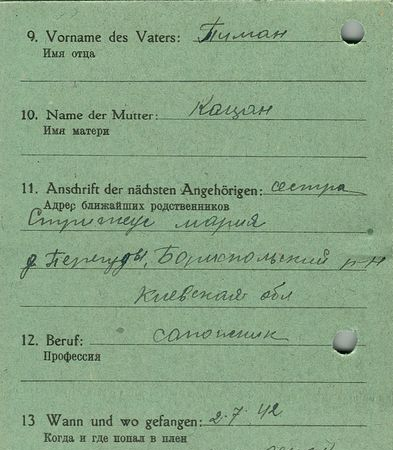 9. Vorname des Vaters: Пиман
Имя отца
10. Name der Mutter: Кацан
Имя матери
11. Anschrift der nächsten Angehörigen: сестра
Адрес ближайших родственников
мария
д Перегуды, Бориспольский р-н
Киевская обл
12. Beruf: сапожник
Профессия
13 Wann und wo gefangen: 2.7.42
Когда и где попал в плен